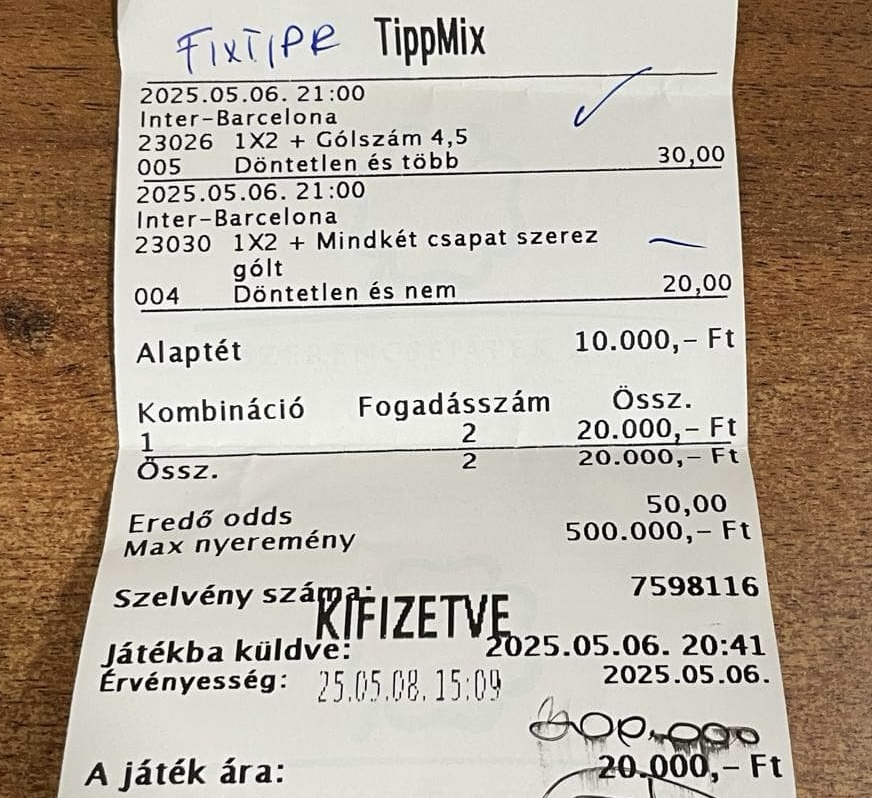 FIXTIPP TippMix
2025.05.06. 21:00
Inter-Barcelona
23026 1X2 + Gólszám 4,5
005 Döntetlen és több 30,00
2025.05.06. 21:00
Inter-Barcelona
23030 1X2 + Mindkét csapat szerez
gólt
004 Döntetlen és nem 20,00
Alaptét 10.000,- Ft
Kombináció Fogadásszám Össz.
1 2 20.000,- Ft
Össz. 2 20.000,- Ft
Eredő odds 50,00
Max nyeremény 500.000,- Ft
Szelvény száma: 7598116
KIFIZETVE
Játékba küldve: 2025.05.06. 20:41
Érvényesség: 25.05.08. 15:09 2025.05.06.
A játék ára: 20.000,- Ft